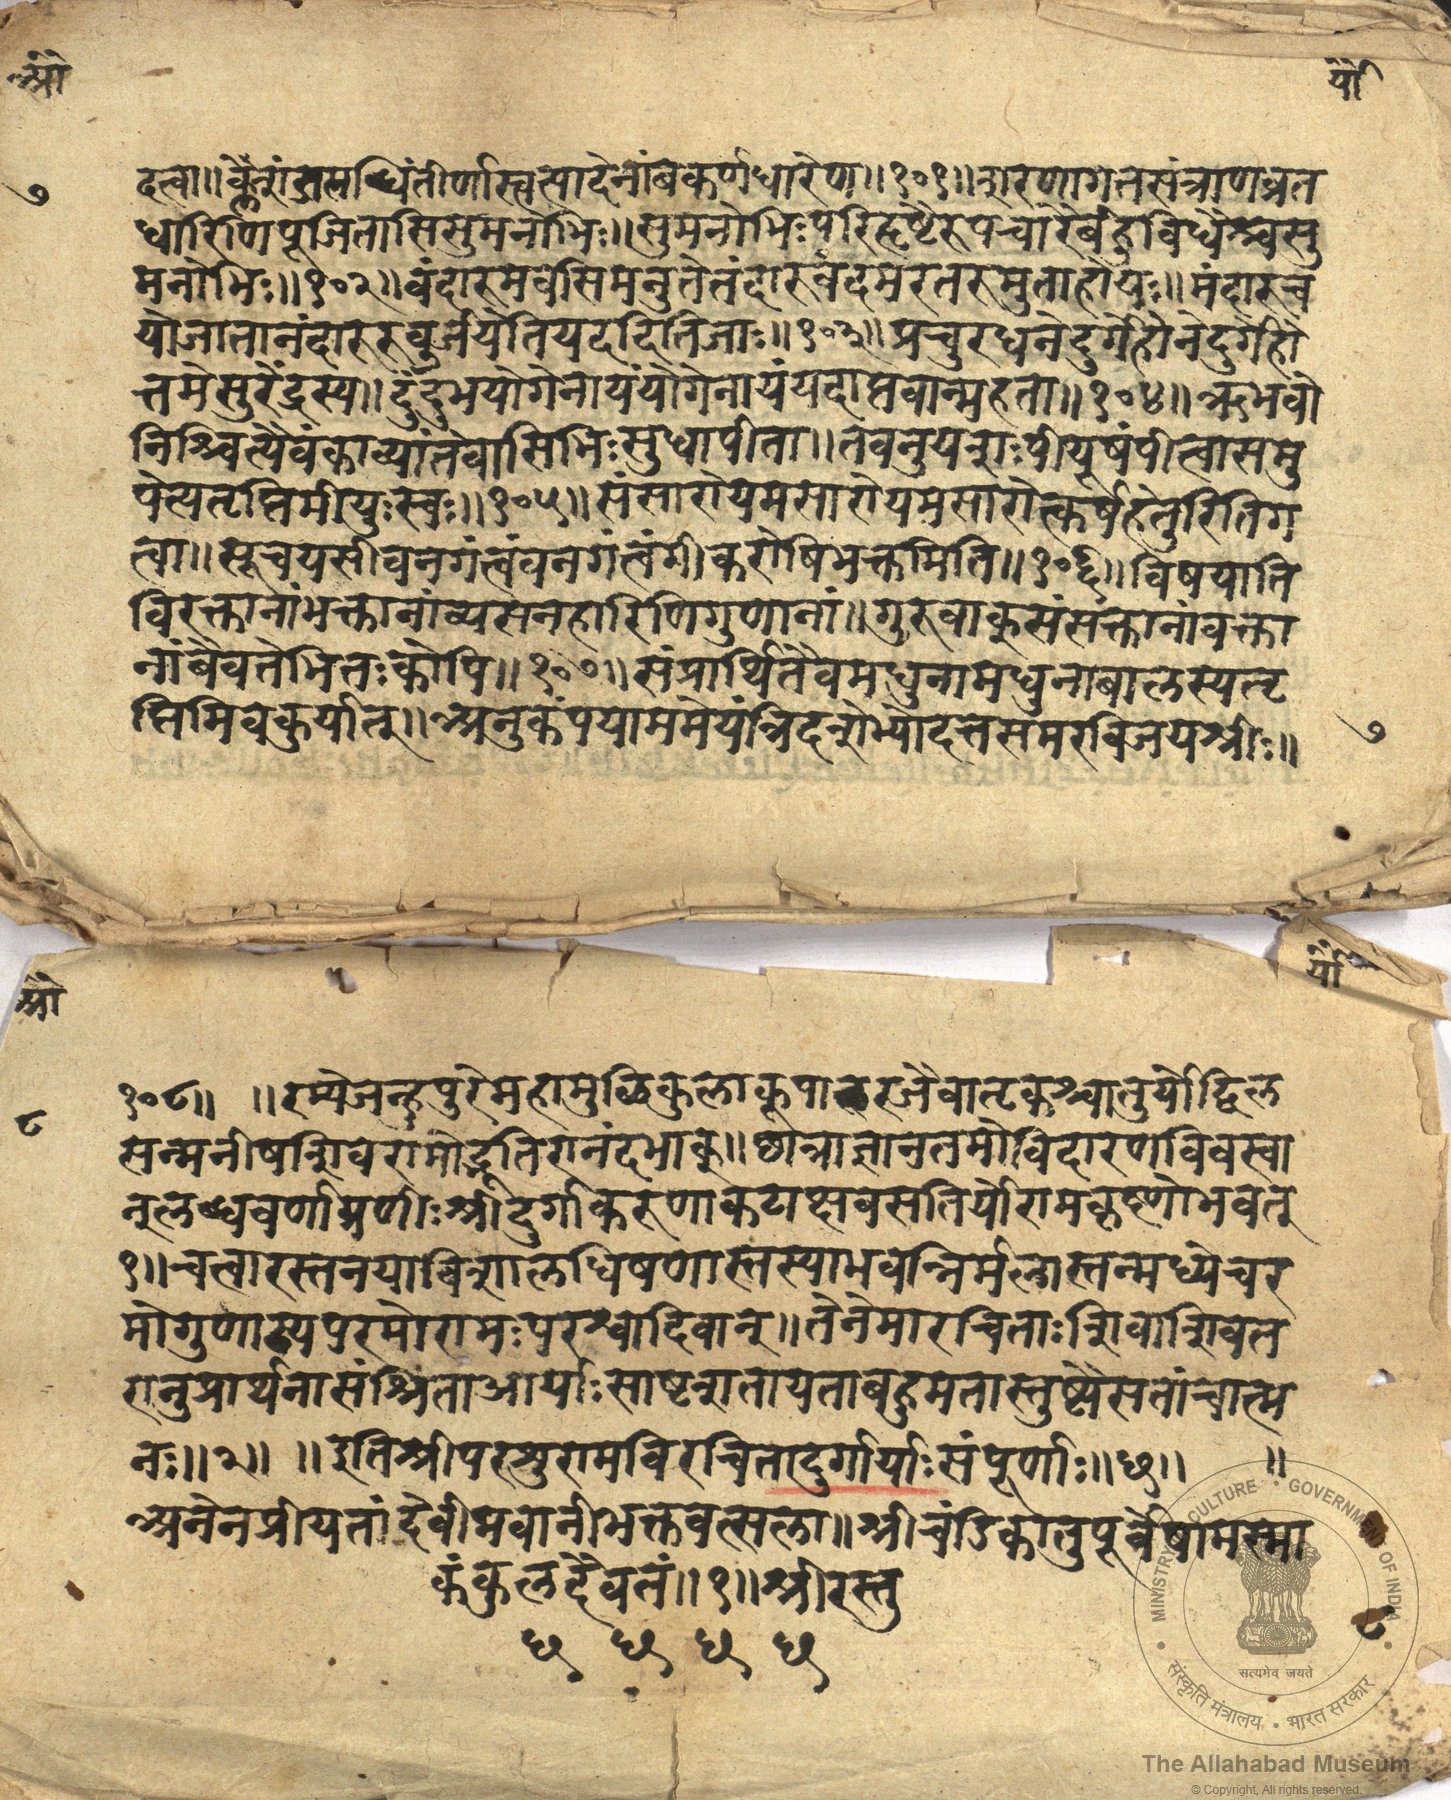 आ
र्या
७
दत्वा॥ क्लेशांतमब्धिंतीर्णास्त्वत्सादेनांबकर्णधारेण॥१०१॥शरणागतसंत्राणव्रत
धारिणिपूजितासिसुमनोभिः॥सुमनोभिःपरिहृष्टैरूपचारैर्बहुविधैश्चसु
मनोभिः॥१०२॥वंदारुमवेसिमनुतेतंदारुवदमरतरुमुताहोयः॥मंदारुच
योजातानंदारुरुवुर्जयेतियददितिजाः॥१०३॥प्रचुरधनेदुर्गेहीनेदुर्गेहो
त्तमेसुरेंद्रस्य॥दुंदुभयोगेनायंयोगेनायंयदाप्तवान्महता॥१०४॥ऋभवो
निश्चित्यैवंकाव्यांतेवासिभिःसुधापीता॥तेवनुयशःपीयूषंपीत्वासमु
पेत्यतृप्तिमीयुःस्वः॥१०५॥संसारोयमसारोयमसारोत्कर्षहेतुरितिग
त्वा॥सूचयसीवनगंत्वंवनगंत्वंगीकरोषिभक्तमिति॥१०६॥विषयाति
विरक्तानांभक्तानांव्यसनहारिणिगुणानां॥गुरुवाक्सुसंसक्तानांवक्ता
नांबैवतेमितःकोपि॥१०७॥संप्रार्थितैवमधुनामधुनाबालस्यतृ
प्तिमिवकुर्यात्॥अनुकंपयाममेयंत्रिदशेभ्योदत्तसमरविजयश्रीः॥
७
आ
र्या
८
१०८॥ ॥रम्येजन्हुपुरेमहामुळिकुलाकूपारजैवातृकश्चातुर्योद्विल
सन्मनीषशिवरामोद्भूतिरानंदभाक्॥छात्राज्ञानतमोविदारणविवस्वा
न्लब्धवर्णाग्रणीःश्रीदुर्गाकरुणाकटाक्षवसतिर्योरामकृष्णोभवत्
१॥चत्वारस्तनयाविशालधिषणास्तस्याभवन्निर्मलास्तन्मध्येचर
मोगुणाढ्यपरमोरामःपरश्वादिवान्॥तेनेमारचिताःशिवाशिवत
रानुप्रार्थनासंश्रिताआर्याःसाष्टशतायताबहुमतास्तुष्ट्यैसतांचात्म
नः॥२॥ ॥इतिश्रीपरशुरामविरचितादुर्गार्याःसंपूर्णाः॥छ॥ ॥
अनेनप्रीयतांदेवीभवानीभक्तवत्सला॥श्रीचंडिकातुपूर्वेषामस्मा
कंकुलदैवतं॥१॥श्रीरस्तु
छ छ छ छ
८
MINISTRY OF CULTURE • GOVERNMENT OF INDIA
सत्यमेव जयते
संस्कृति मंत्रालय • भारत सरकार
The Allahabad Museum
© Copyright, All rights reserved.